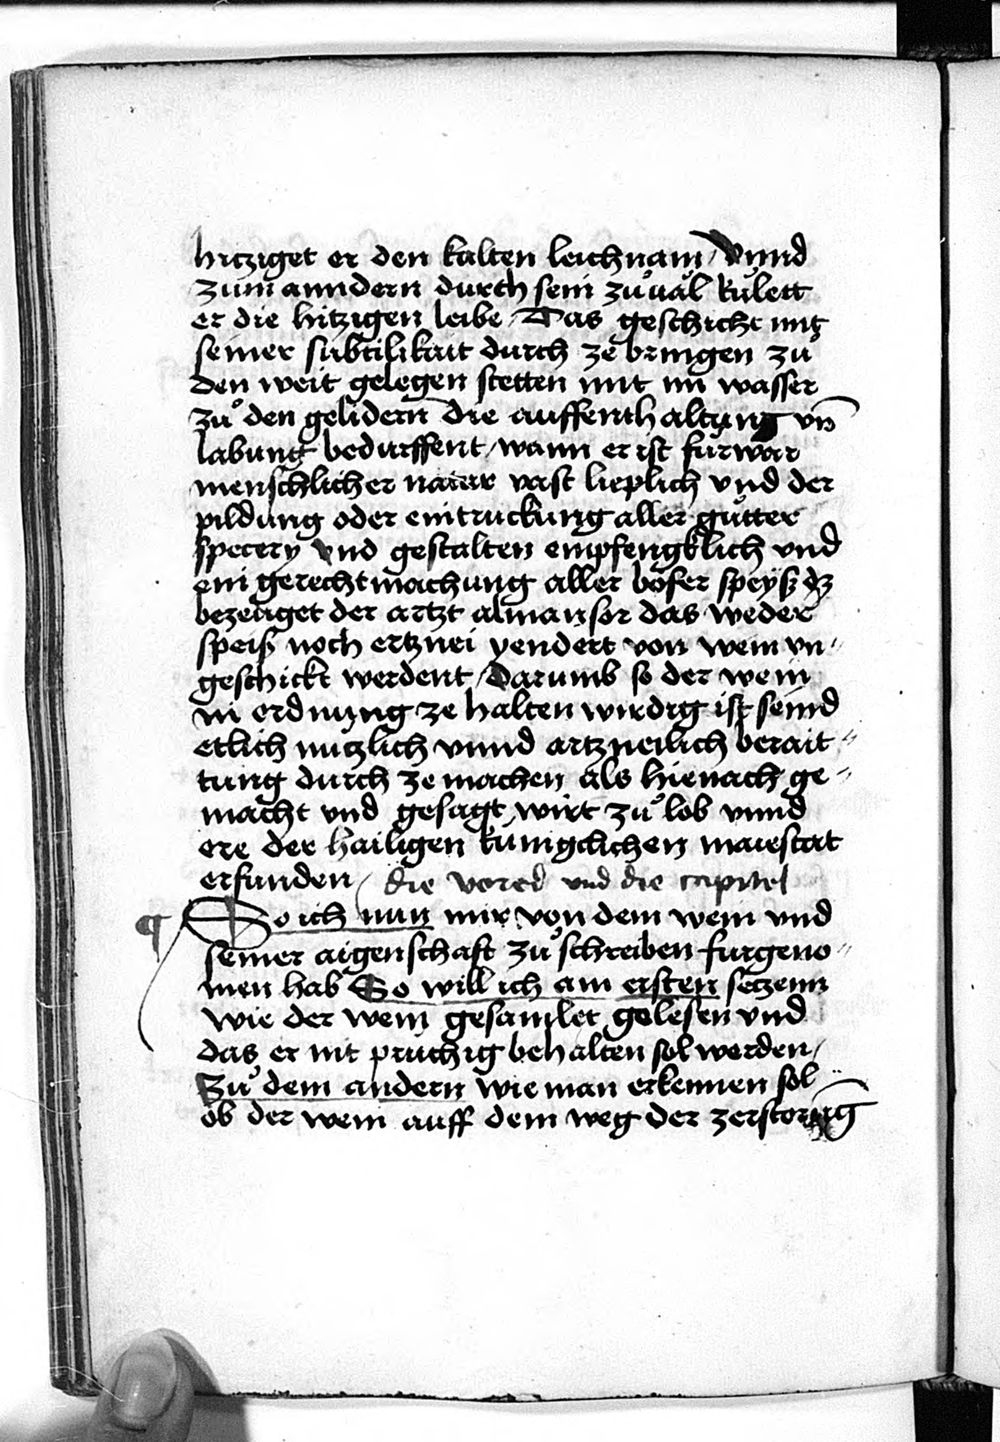 hitziget er den kalten leichnam / vnnd
zum anndern durch sein zuͦual kuͤlett
er die hitzigen leibe / Das geschicht mit
seiner subtilikait durch ze bringen zuͦ
den weit gelegen stetten mit im wasser
zuͦ den gelidern die auffenthaltung vn̄
labung bedurffent / wann er ist furwar
menschlicher natur vast lieplich vnd der
pildung oder eintruckung aller guͤtter
specery vnd gestalten empfengklich vnd
ein gerechtmachung aller boser speyß dz
bezeuget der artzt almansor das weder
speiß noch ertznei yendert von wein vn〃
geschickt werdent / Darumb so der wein
in ordnung ze halten wirdig ist seind
etlich nutzlich vnnd artzneilich berait〃
tung durch ze machen als hienach ge〃
macht vnd gesagt wirt zuͦ lob vnnd
ere der hailigen kunigclichen maiestat
erfunden / die vored vnd die capitel
¶ So ich nun mir von dem wein vnd
seiner aigenschaft zuͦ schreiben furgeno〃
men hab So will ich am ersten setzenn
wie der wein gesamlet gelesen vnd
das er nit pruchig behalten sol werden /
Zuͦ dem andern wie man erkennen sol
ob der wein auff dem weg der zerstorūg